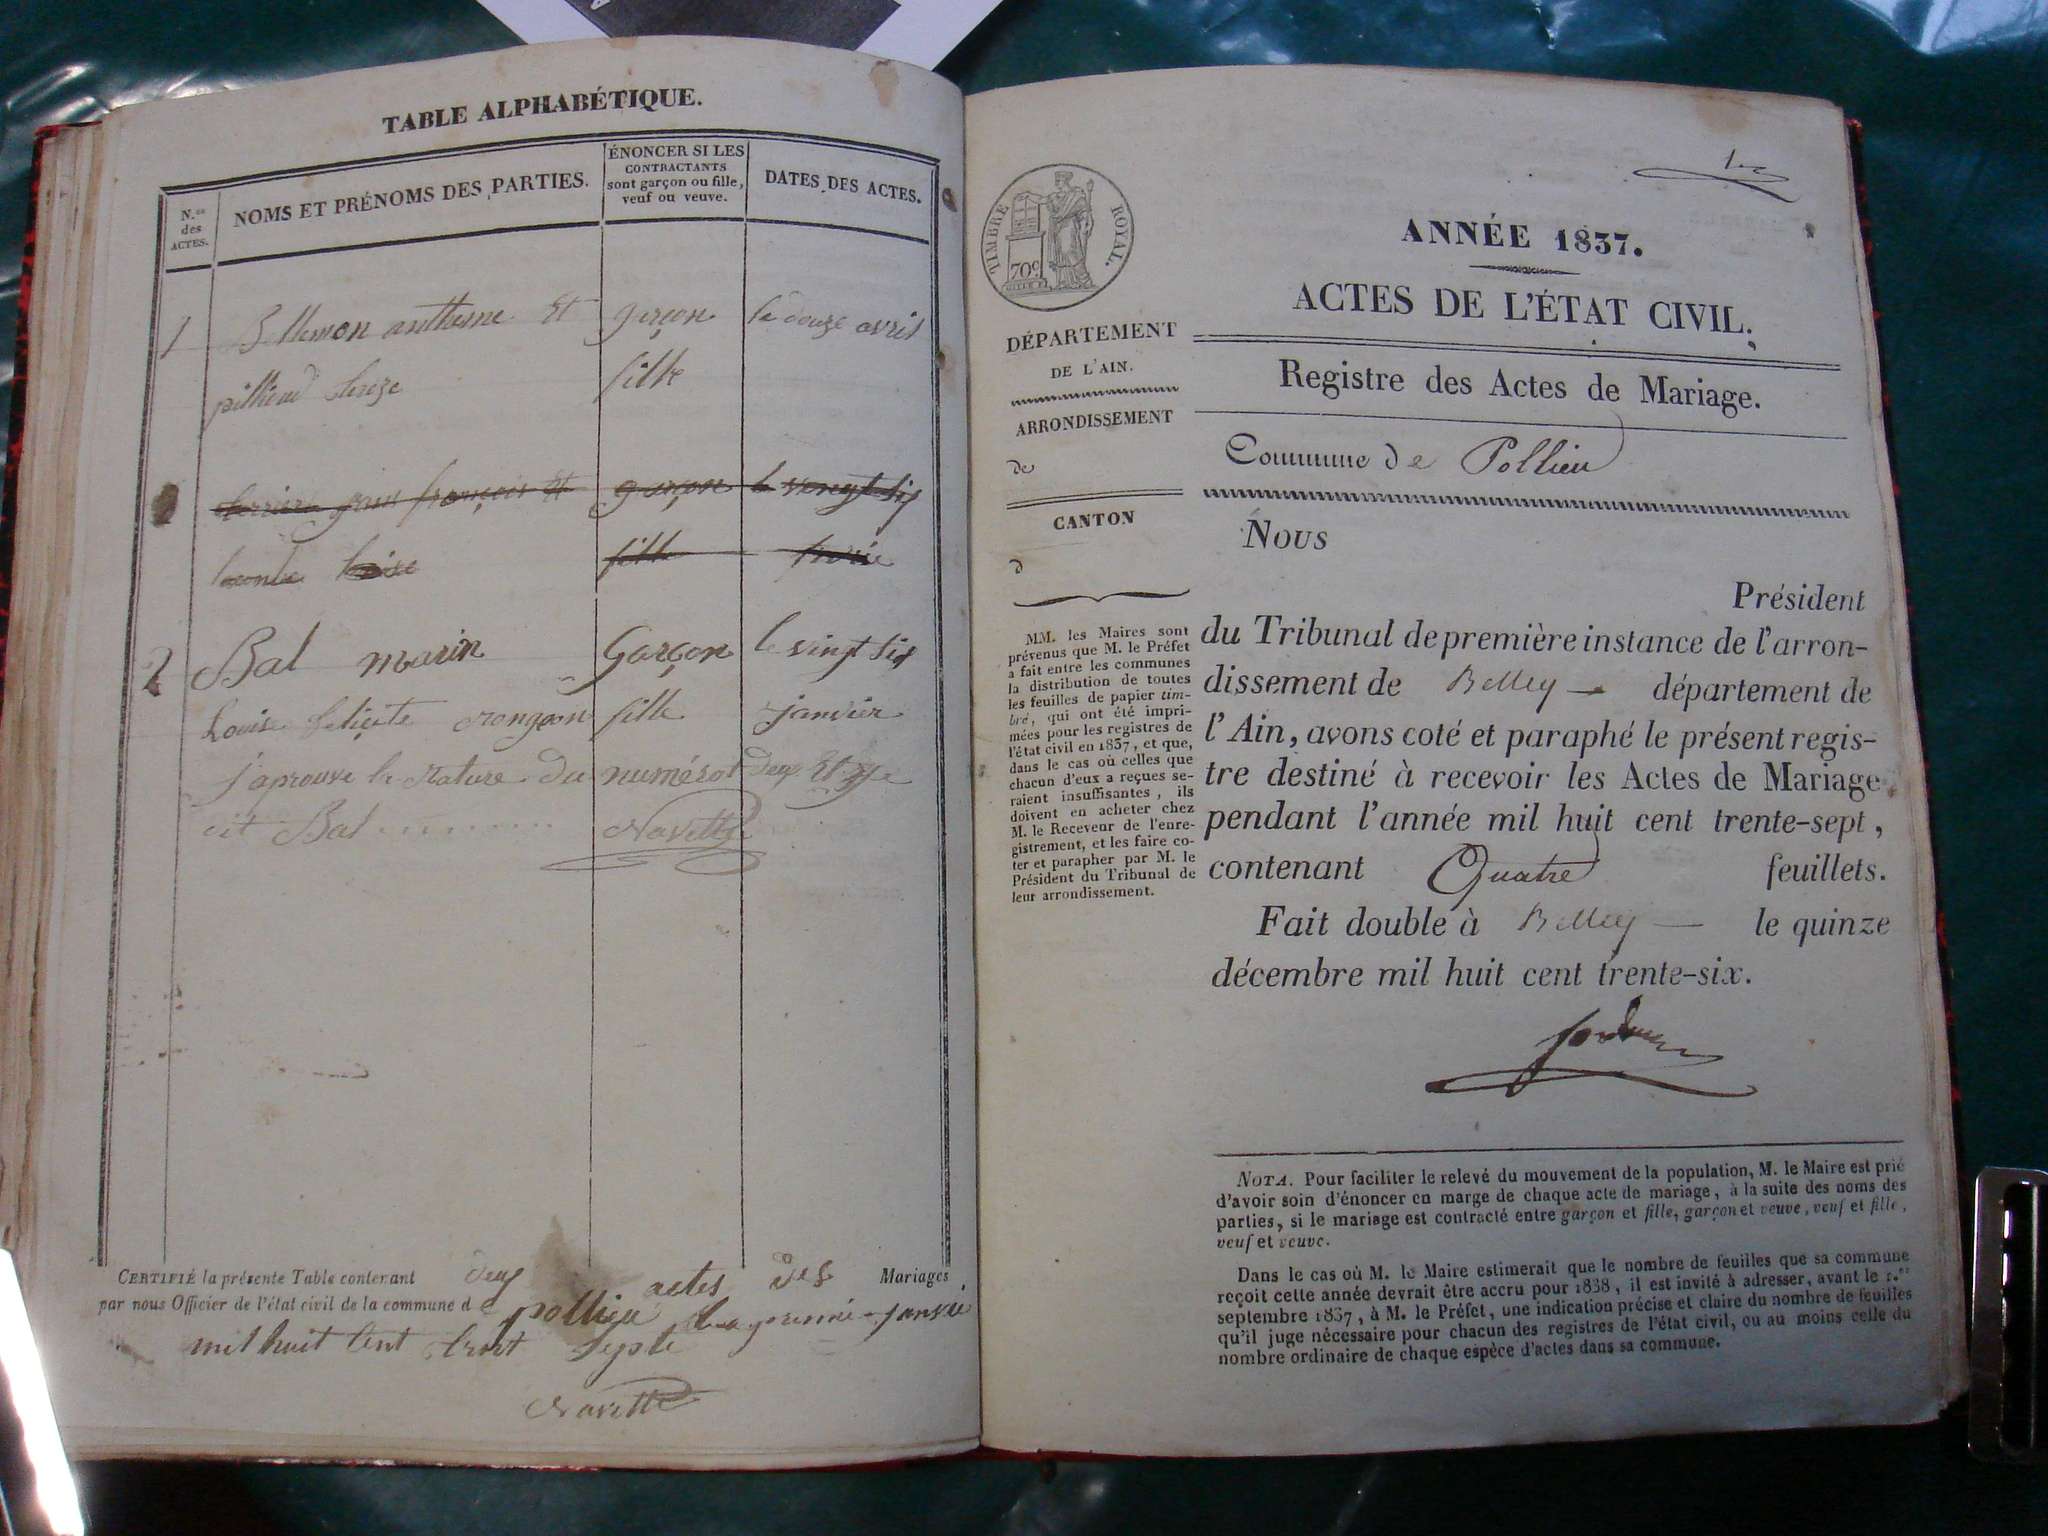 TABLE ALPHABÉTIQUE.
N.os des ACTES.
NOMS ET PRÉNOMS DES PARTIES.
ÉNONCER SI LES
CONTRACTANTS
sont garçon ou fille,
veuf ou veuve.
DATES DES ACTES.
1 anthesme Et garçon le douze avril
fille
jean françois Et garçon le vengt six
fille
2 Bal marin Garçon le vingt six
Louise felicite fille janvier
j'aprouve la Rature du numérot deux Et
dit Bal Navette
CERTIFIÉ la présente Table contenant deux actes des Mariages
par nous Officier de l'état civil de la commune d pollieu janvie
mil huit Cent trent septe
Navette
TIMBRE ROYAL.
70c
ANNÉE 1837.
ACTES DE L'ÉTAT CIVIL.
Registre des Actes de Mariage.
Commune de Pollieu
DÉPARTEMENT
DE L'AIN.
ARRONDISSEMENT
de
CANTON
d
MM. les Maires sont
prévenus que M. le Préfet
a fait entre les communes
la distribution de toutes
les feuilles de papier tim-
bré, qui ont été impri-
mées pour les registres de
l'état civil en 1837, et que,
dans le cas où celles que
chacun d'eux a reçues se-
raient insuffisantes, ils
doivent en acheter chez
M. le Receveur de l'enre-
gistrement, et les faire co-
ter et parapher par M. le
Président du Tribunal de
leur arrondissement.
Nous
Président
du Tribunal de première instance de l'arron-
dissement de Belley département de
l'Ain, avons coté et paraphé le présent regis-
tre destiné à recevoir les Actes de Mariage
pendant l'année mil huit cent trente-sept,
contenant Quatre feuillets.
Fait double à Belley le quinze
décembre mil huit cent trente-six.
NOTA. Pour faciliter le relevé du mouvement de la population, M. le Maire est prié
d'avoir soin d'énoncer en marge de chaque acte de mariage, à la suite des noms des
parties, si le mariage est contracté entre garçon et fille, garçon et veuve, veuf et fille,
veuf et veuve.
Dans le cas où M. le Maire estimerait que le nombre de feuilles que sa commune
reçoit cette année devrait être accru pour 1838, il est invité à adresser, avant le 1.er
septembre 1837, à M. le Préfet, une indication précise et claire du nombre de feuilles
qu'il juge nécessaire pour chacun des registres de l'état civil, ou au moins celle du
nombre ordinaire de chaque espèce d'actes dans sa commune.